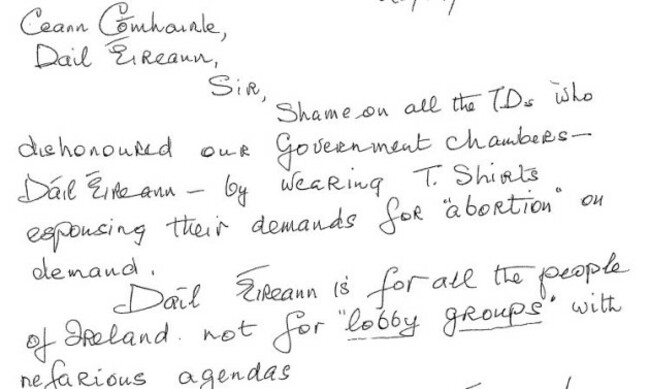 Ceann Comhairle,
Dáil Éireann,
Sir,
Shame on all the T.Ds who
dishonoured our Government Chambers—
Dáil Éireann — by wearing T. Shirts
espousing their demands for "abortion" on
demand.
Dáil Éireann is for all the people
of Ireland. not for "lobby groups" with
nefarious agendas